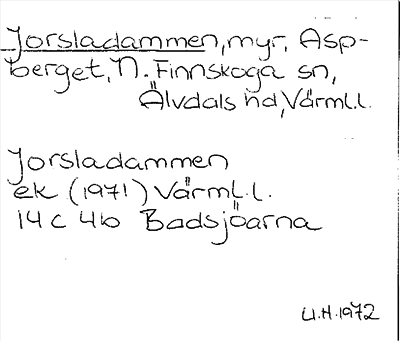 Jorsladammen, myr, Asp-
berget, N. Finnskoga sn,
Älvdals hd, Värml.l.
Jorsladammen
ek (1971) Värml.l.
14 C 4b Badsjöarna
U.H. 1972